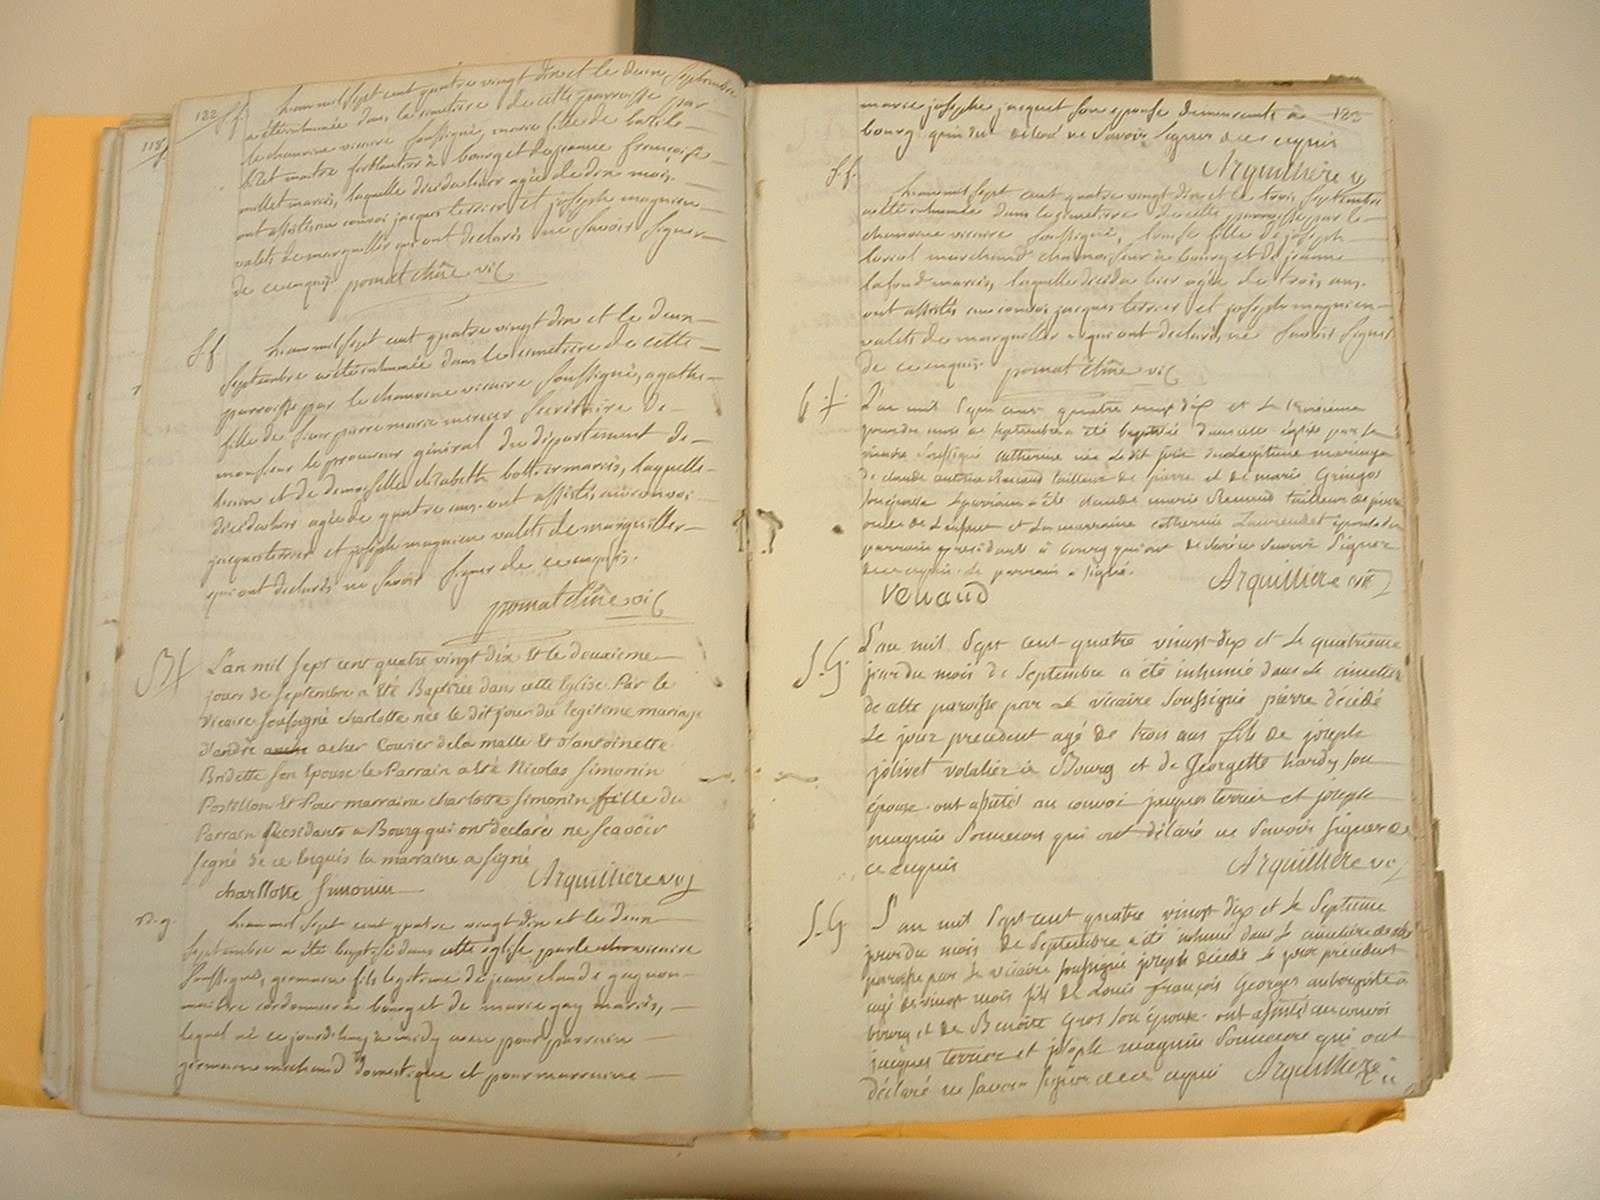 122
S f. L'an mil sept cent quatre vingt dix et le deux septembre
a été inhumée dans le cimetiere de cette parroisse par
le chanoine vicaire soussigné, marie fille de
maitre à bourg et de jeanne françoise
millet mariés, laquelle décéda hier agée de dix mois.
ont assistés au convoi jacques terrier et joseph magnien
valets de marguillier qui ont declarés ne savoir signer
de ce enquis pomat chne vic
S f L'an mil sept cent quatre vingt dix et le deux
septembre a été inhumée dans le cimetiere de cette
parroisse par le chanoine vicaire soussigné, agathe
fille de sieur pierre marie mercier secrétaire de
monsieur le procureur général du département de
et de demoiselle elizabeth mariés, laquelle
décéda hier agée de quatre ans. ont assistés au convoi
jacques terrier et joseph magnien valets de marguillier
qui ont declarés ne savoir signer de ce enquis.
pomat chne vic
B f L'an mil sept cent quatre vingt dix et le deuxieme
jours de septembre a été Baptisée dans cette Eglise Par le
vicaire sousigné charlotte née le dit jour du legitime mariage
d'andré acher Courier de la malle Et d'antoinette
Bridette son Epouse le Parrain a été Nicolas Simonin
Postillon Et Pour marraine charlotte simonin fille du
Parrain Residants a Bourg qui ont declaré ne scavoir
signé de ce Enquis la marraine a signé
charllotte simonin Arquilliere vic
B. g. L'an mil sept cent quatre vingt dix et le deux
septembre a été baptisé dans cette église par le vicaire
soussigné, germain fils legitime de jean claude gagnon
maitre cordonnier à bourg et de marie gay mariés,
lequel né ce jourd'huy à midy a eu pour parrain
germain michaud domestique et pour marraine
marie josephe jacquet son epouse demeurants à 123
bourg qui ont déclaré ne savoir signer de ce enquis
Arquilliere v
S f. L'an mil sept cent quatre vingt dix et le trois septembre
a été inhumée dans le cimetiere de cette parroisse par le
chanoine vicaire soussigné, louise fille de joseph
loriol marchand chamoiseur à bourg et de jeanne
lafond mariés, laquelle décéda hier agée de trois ans.
ont assistés au convoi jacques terrier et joseph magnien
valets de marguillier qui ont declarés ne savoir signer
de ce enquis. pomat chne vic
L'an mil sept cent quatre vingt dix et le troisieme
jour du mois de septembre a été baptisée dans cette eglise par le
vicaire soussigné catherine née le dit jour du legitime mariage
de claude antoine Renaud tailleur de pierre et de marie
son epouse. Le parrain a été claude marie Renaud tailleur de pierre
oncle de l'enfant et la marraine catherine epouse du
parrain residants à bourg qui ont declaré ne savoir signer
de ce enquis. le parrain a signé.
Venaud Arquilliere vic
S. G. L'an mil sept cent quatre vingt dix et le quatrieme
jour du mois de septembre a été inhumé dans le cimetiere
de cette paroisse par le vicaire soussigné pierre décédé
le jour precedent agé de trois ans fils de joseph
jolivet volalier à Bourg et de Georgette hardy son
épouse. ont assisté au convoi jacques terrier et joseph
magnin sonneurs qui ont déclaré ne savoir signer de
ce enquis Arquilliere vic
S. G L'an mil sept cent quatre vingt dix et le septieme
jour du mois de septembre a été inhumé dans le cimetiere de cette
paroisse par le vicaire soussigné joseph décédé le jour precedent
agé de vingt mois fils de Louis françois Georges aubergiste à
bourg et de Benoite Gros son épouse. ont assisté au convoi
jacques terrier et joseph magnin sonneurs qui ont
déclaré ne savoir signer de ce enquis Arquilliere